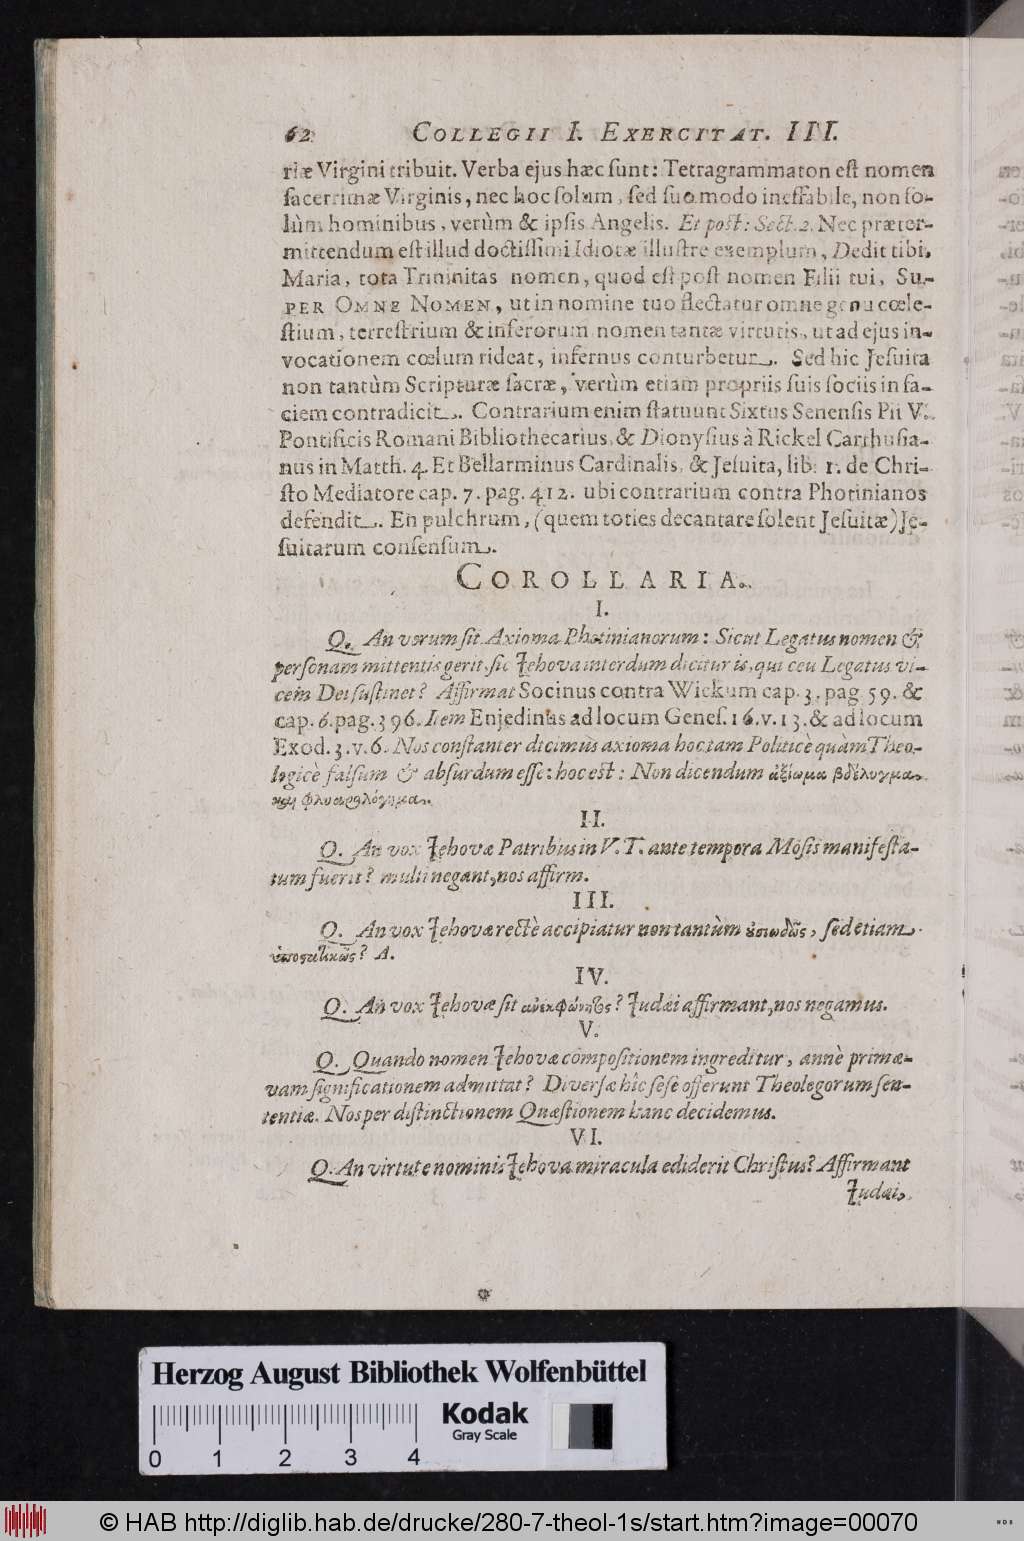 62 COLLEGII I. EXERCITAT. III.
riæ Virgini tribuit. Verba ejus hæc ſunt: Tetragrammaton eſt nomen
ſacerrimæ Virginis, nec hoc ſolum, ſed ſuo modo ineffabile, non ſo-
lùm hominibus, verùm & ipſis Angelis. Et poſt: Sect. 2. Nec præter-
mittendum eſt illud doctiſſimi Idiotæ illuſtre exemplum, Dedit tibi,
Maria, tota Trininitas nomen, quod eſt poſt nomen Filii tui, SU-
PER OMNE NOMEN, ut in nomine tuo flectatur omne genu cœle-
ſtium, terreſtrium & inferorum nomen tantæ virtutis, ut ad ejus in-
vocationem cœlum rideat, infernus conturbetur. Sed hic Jeſuita
non tantùm Scripturæ ſacræ, verùm etiam propriis ſuis ſociis in fa-
ciem contradicit. Contrarium enim ſtatuunt Sixtus Senenſis Pii V.
Pontificis Romani Bibliothecarius, & Dionyſius à Rickel Carthuſia-
nus in Matth. 4. Et Bellarminus Cardinalis, & Jeſuita, lib. 1. de Chri-
ſto Mediatore cap. 7. pag. 412. ubi contrarium contra Photinianos
defendit. En pulchrum, (quem toties decantare ſolent Jeſuitæ) Je-
ſuitarum conſenſum.
COROLLARIA.
I.
Q. An verum ſit Axioma Photinianorum: Sicut Legatus nomen &
perſonam mittentis gerit, ſic Jehova interdum dicitur is, qui ceu Legatus vi-
cem Dei ſuſtinet? Affirmat Socinus contra Wickum cap. 3. pag. 59. &
cap. 6. pag. 396. Item Enjedinus ad locum Geneſ. 16. v. 13. & ad locum
Exod. 3. v. 6. Nos conſtanter dicimus axioma hoc tam Politicè quàm Theo-
logicè falſum & abſurdum eſſe: hoc eſt: Non dicendum ἀξίωμα βδέλυγμα
καὶ φλυαρολόγημα.
II.
Q. An vox Jehovæ Patribus in V. T. ante tempora Moſis manifeſta-
tum fuerit? multi negant, nos affirm.
III.
Q. An vox Jehovæ rectè accipiatur non tantùm οὐσιωδῶς, ſed etiam
ὑποστατικῶς? A.
IV.
Q. An vox Jehovæ ſit ἀνεκφώνητος? Judæi affirmant, nos negamus.
V.
Q. Quando nomen Jehovæ compoſitionem ingreditur, annè primæ-
vam ſignificationem admittat? Diverſæ hîc ſeſe offerunt Theologorum ſen-
tentiæ. Nos per diſtinctionem Quæſtionem hanc decidemus.
VI.
Q. An virtute nominis Jehova miracula ediderit Chriſtus? Affirmant
Judæi,
Herzog August Bibliothek Wolfenbüttel
Kodak
Gray Scale
0 1 2 3 4
© HAB http://diglib.hab.de/drucke/280-7-theol-1s/start.htm?image=00070